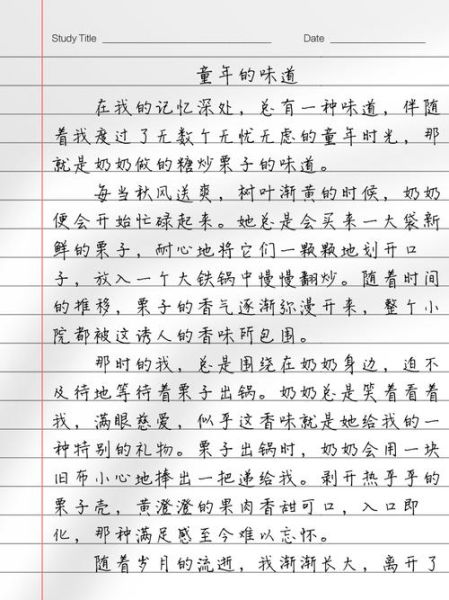 Study Title Date
童年的味道
在我的记忆深处，总有一种味道，伴随
着我度过了无数个无忧无虑的童年时光，那
就是奶奶做的糖炒栗子的味道。
每当秋风送爽，树叶渐黄的时候，奶奶
便会开始忙碌起来。她总是会买来一大袋新
鲜的栗子，耐心地将它们一颗颗地划开口
子，放入一个大铁锅中慢慢翻炒。随着时间
的推移，栗子的香气逐渐弥漫开来，整个小
院都被这诱人的香味所包围。
那时的我，总是围绕在奶奶身边，迫不
及待地等待着栗子出锅。奶奶总是笑着看着
我，满眼慈爱，似乎这香味就是她给我的一
种特别的礼物。栗子出锅时，奶奶会用一块
旧布小心地捧出一把递给我。剥开热乎乎的
栗子壳，黄澄澄的果肉香甜可口，入口即
化，那种满足感至今难以忘怀。
随着岁月的流逝，我渐渐长大，离开了